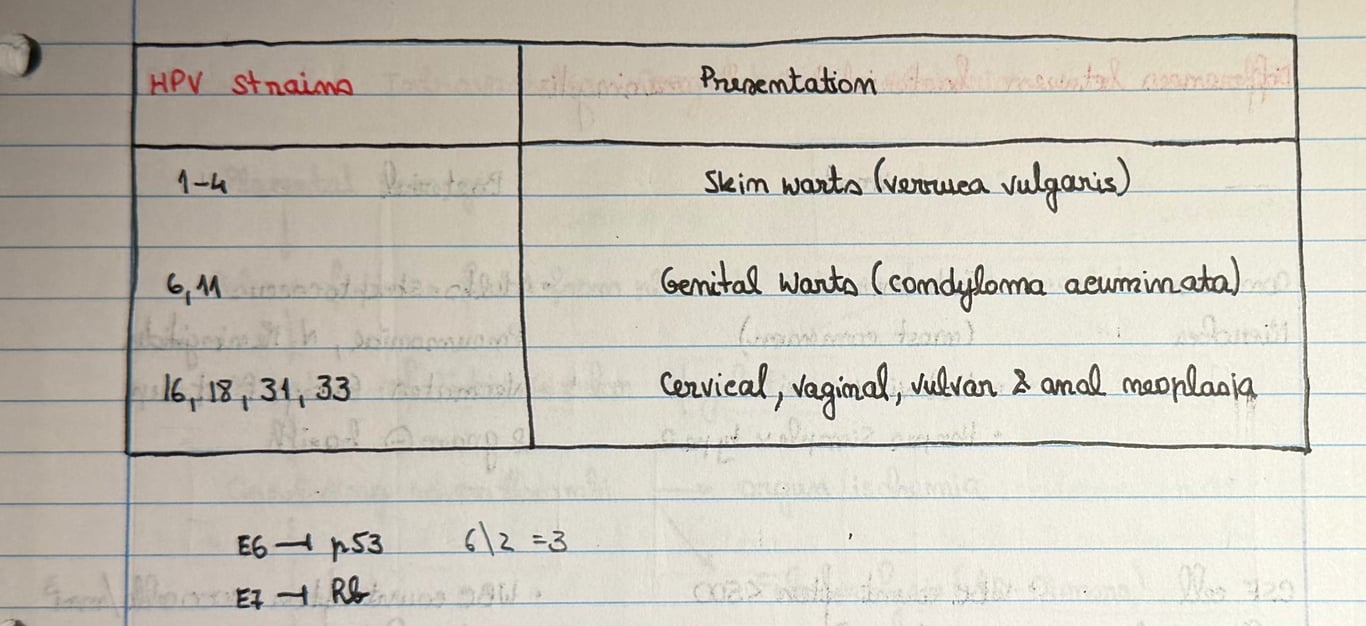 HPV Strains Presentation
1-4 Skin warts (verruca vulgaris)
6, 11 Genital warts (condyloma acuminata)
16, 18, 31, 33 Cervical, vaginal, vulvar & anal neoplasia
E6 ⊣ p53 6\2 = 3
E7 ⊣ Rb